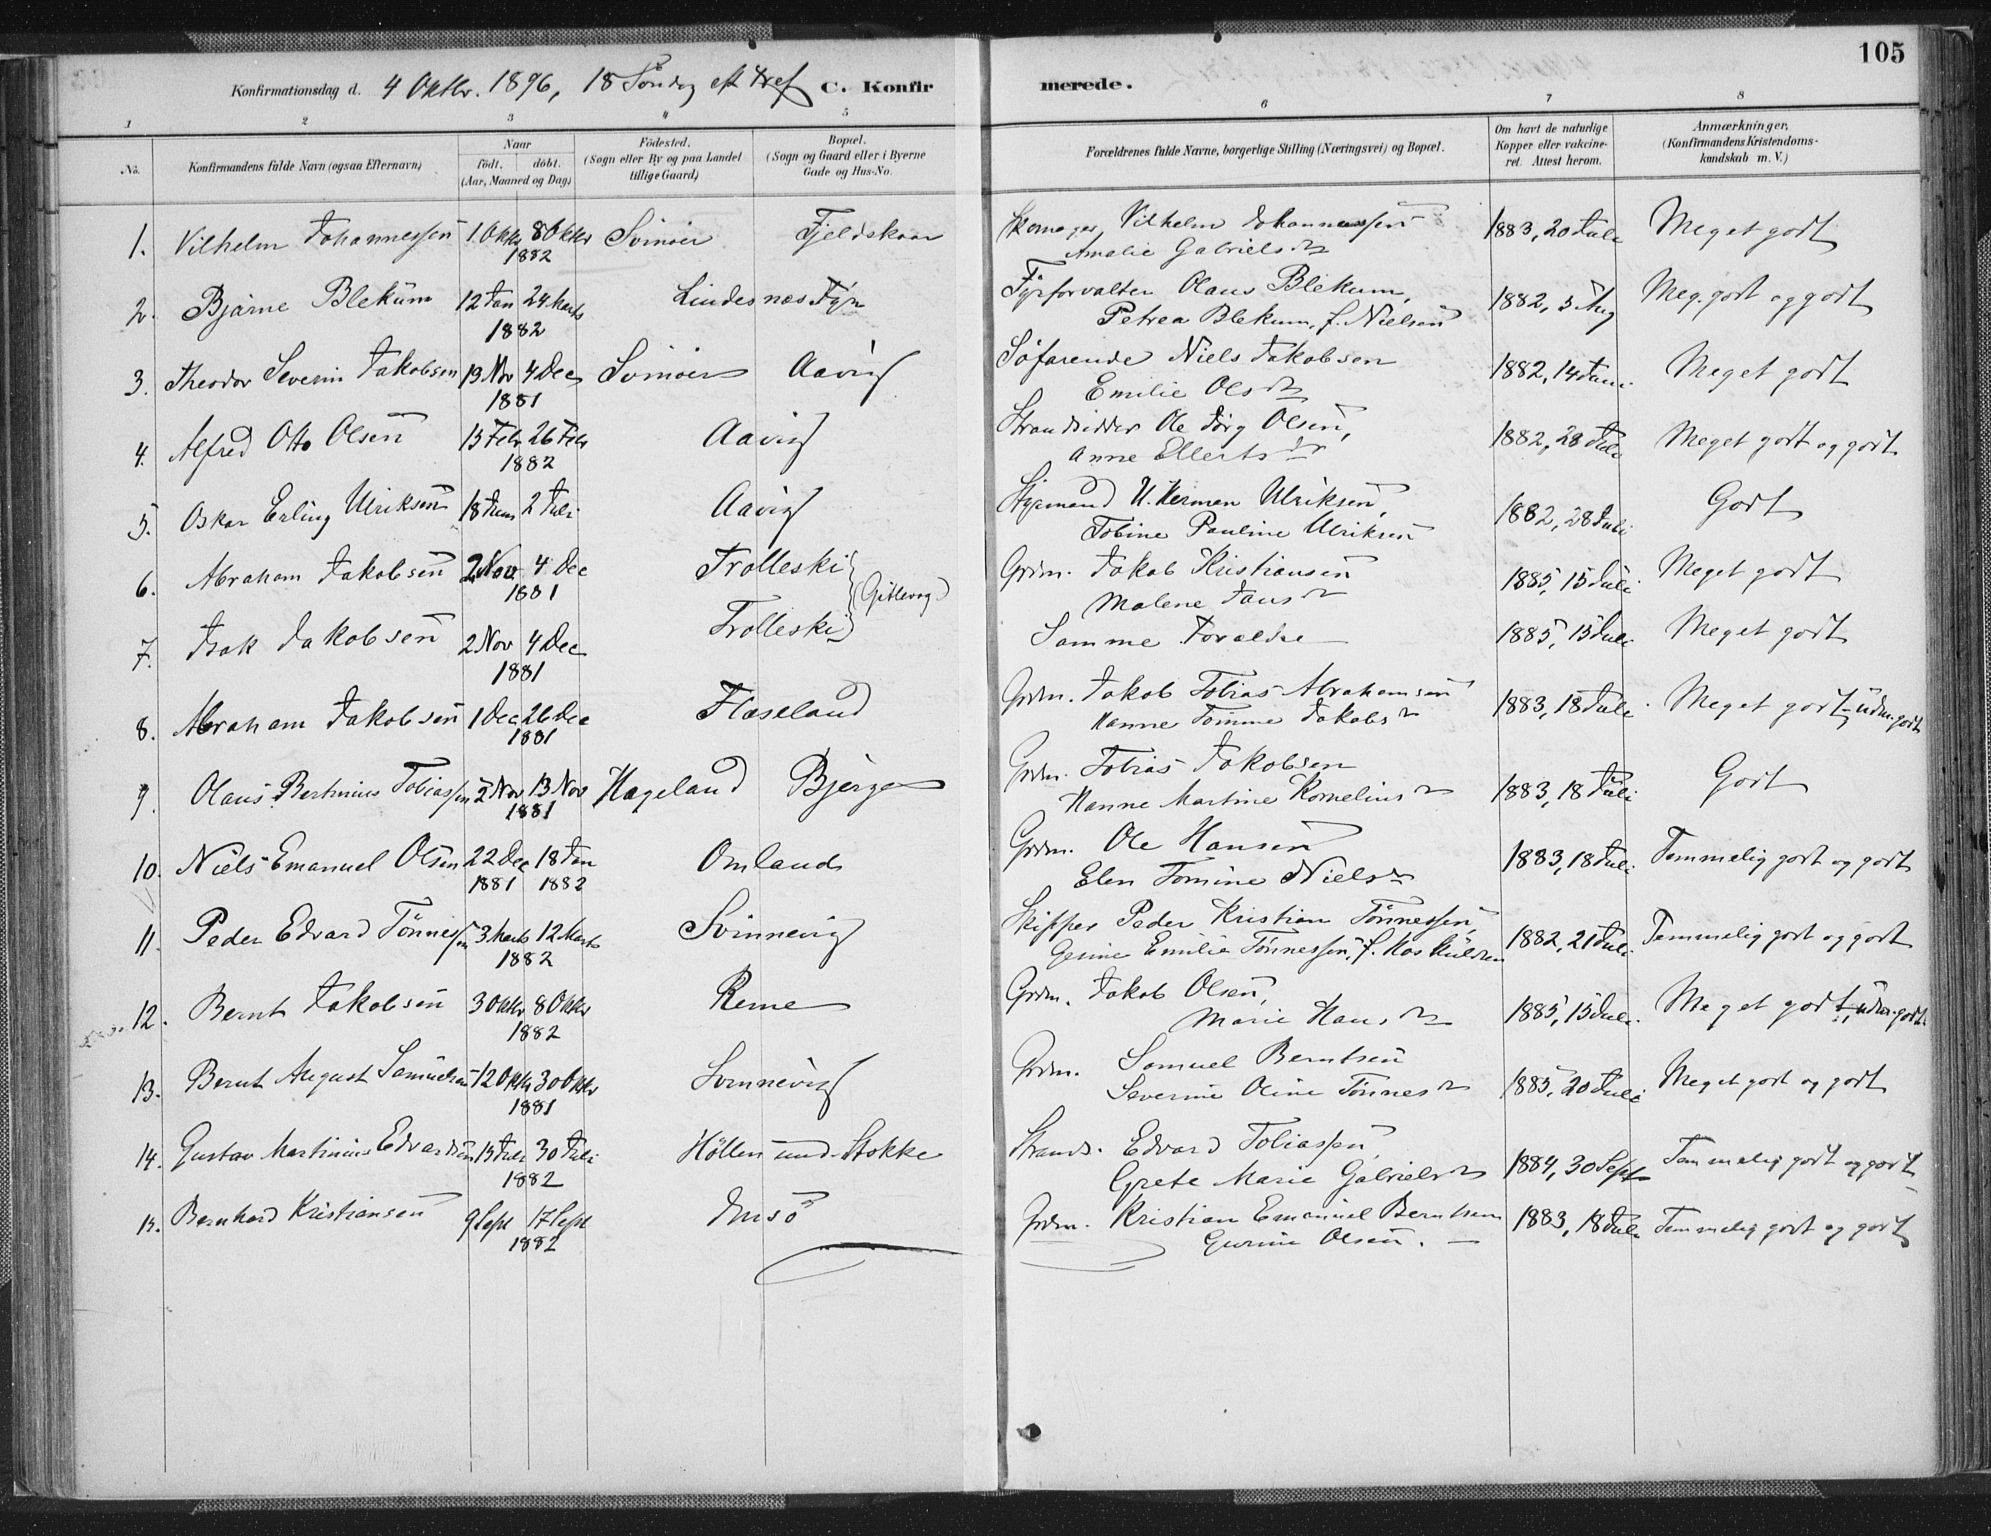 105
Konfirmationsdag d. 4 Oktbr. 1896, 18 Søndag eft Tref C. Konfirmerede.
1 2 3 4 5 6 7 8
No. Konfirmandens fulde Navn (ogsaa Efternavn) Naar födt. döbt. (Aar, Maaned og Dag) Födested. (Sogn eller By og paa Landet tillige Gaard) Bopæl. (Sogn og Gaard eller i Byerne Gade og Hus-No. Forældrenes fulde Navne, borgerlige Stilling (Næringsvei) og Bopæl. Om havt de naturlige Kopper eller vakcineret. Attest herom. Anmærkninger, (Konfirmandens Kristendomskundskab m. V.)
1. Vilhelm Johannessen 1 Oktbr 8 Oktbr 1882 Svinøer Fjeldskaar Skomager Vilhelm Johannessen 1883, 20 Juli Meget godt
Amalie Gabrielsdtr
2. Bjarne Blekum 12 Jan 24 Marts 1882 Lindesnæs Fyr Fyrforvalter Olaus Blekum, 1882, 5 Aug Meg. godt og godt
Petrea Blekum, f. Nielsen
3. Theodor Severin Jakobsen 19 Nov 4 Dec 1881 Svinøer Aavig Söfarende Niels Jakobsen 1882, 14 Juni Meget godt
Emilie Olsdtr
4. Alfred Otto Olsen 13 Febr 26 Febr 1882 Aavig Strandsidder Ole Jörg Olsen, 1882, 28 Juli Meget godt og godt
Anne Ellertsdtr
5. Oskar Erling Ulriksen 18 Juni 2 Juli Aavig Styrmand U. Herman Ulriksen, 1882, 28 Juli Godt
Tobine Pauline Ulriksen
6. Abraham Jakobsen 2 Nov 4 Dec 1881 Trolleski (Gitlevåg) Grdm. Jakob Kristiansen 1885, 15 Juli Meget godt
Malene Jansdtr
7. Isak Jakobsen 2 Nov 4 Dec 1881 Trolleski Samme Forældre 1885, 15 Juli Meget godt
8. Abraham Jakobsen 1 Dec 26 Dec 1881 Flæseland Grdm. Jakob Tobias Abrahamsen 1883, 18 Juli. Meget godt - udm. godt
Hanne Tomine Jakobsdtr
9. Olaus Bertinius Tobiassen 2 Nov 13 Nov 1881 Hageland Bjerge Grdm. Tobias Jakobsen 1883, 18 Juli Godt
Hanne Martine Korneliusdtr
10. Niels Emanuel Olsen 22 Dec 1881 18 Jan 1882 Omland Grdm. Ole Hansen 1883, 18 Juli Temmelig godt og godt
Elen Tomine Nielsdtr
11. Peder Edvard Tönnessen 3 Marts 12 Marts 1882 Svinnevig Skipper Peder Kristian Tönnessen, 1882, 21 Juli. Temmelig godt og godt
Gesine Emilie Tönnessen, f.
12. Bernt Jakobsen 3 Oktbr 8 Oktbr 1882 Reme Grdm. Jakob Olsen, 1885, 15 Juli. Meget godt, udm. godt
Marie Hansdtr
13. Bernt August Samuelsen 12 Oktbr 30 Oktbr 1881 Svinnevig Grdm. Samuel Berntsen 1885, 20 Juli Meget godt og godt
Severine Oline Tönnesdtr
14. Gustav Martinius Edvardsen 13 Juli 30 Juli 1882 Höllen und. Stokke Strands. Edvard Tobiassen, 1884, 30 Sept Temmelig godt og godt
Grete Marie Gabrielsdtr
15. Bernhard Kristiansen 9 Sept 17 Sept 1882 Imsö Grdm. Kristian Emanuel Berntsen 1883, 18 Juli Temmelig godt og godt
Gurine Olsen.